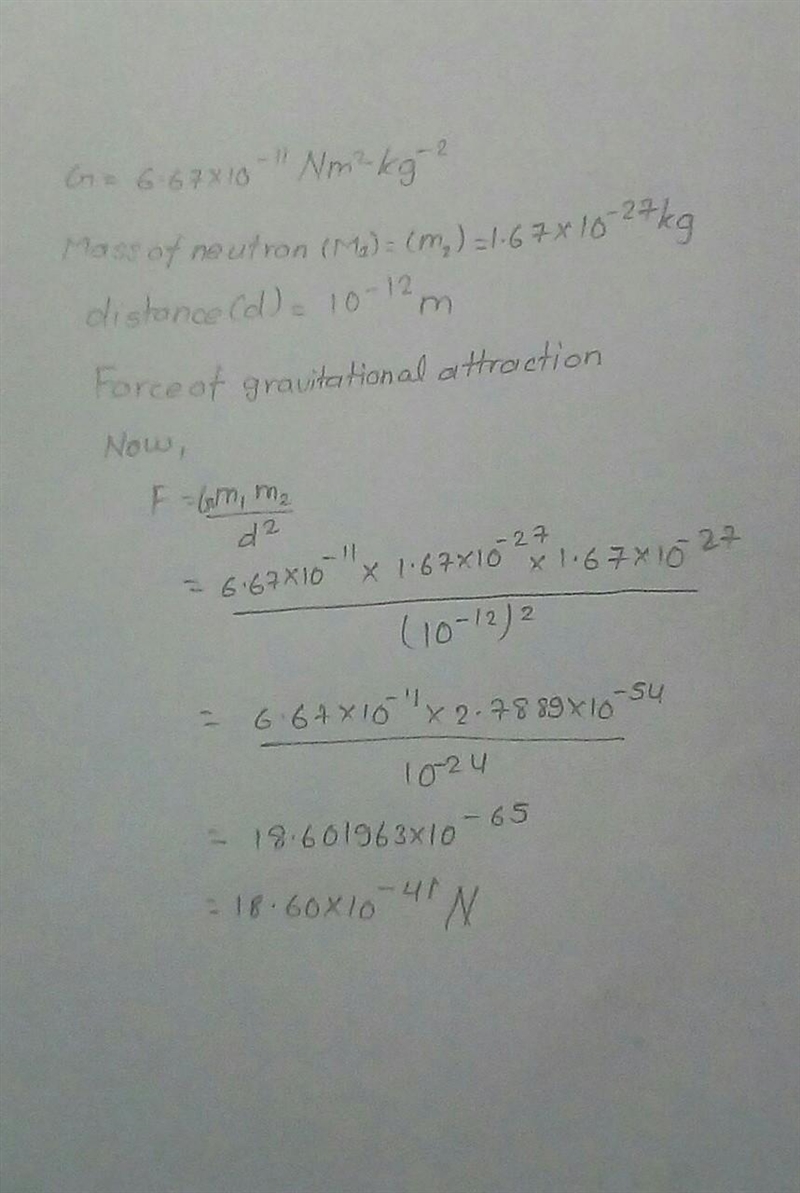 G = 6.67×10⁻¹¹ Nm²kg⁻²
Mass of neutron (M₁) = (m₂) = 1.67×10⁻²⁷kg
distance (d) = 10⁻¹² m
Force of gravitational attraction
Now,
F = Gm₁ m₂
d²
= 6.67×10⁻¹¹ × 1.67×10⁻²⁷ × 1.67×10⁻²⁷
(10⁻¹²)²
= 6.67×10⁻¹¹ × 2.7889×10⁻⁵⁴
10⁻²⁴
= 18.601963×10⁻⁶⁵
= 18.60×10⁻⁴¹ N